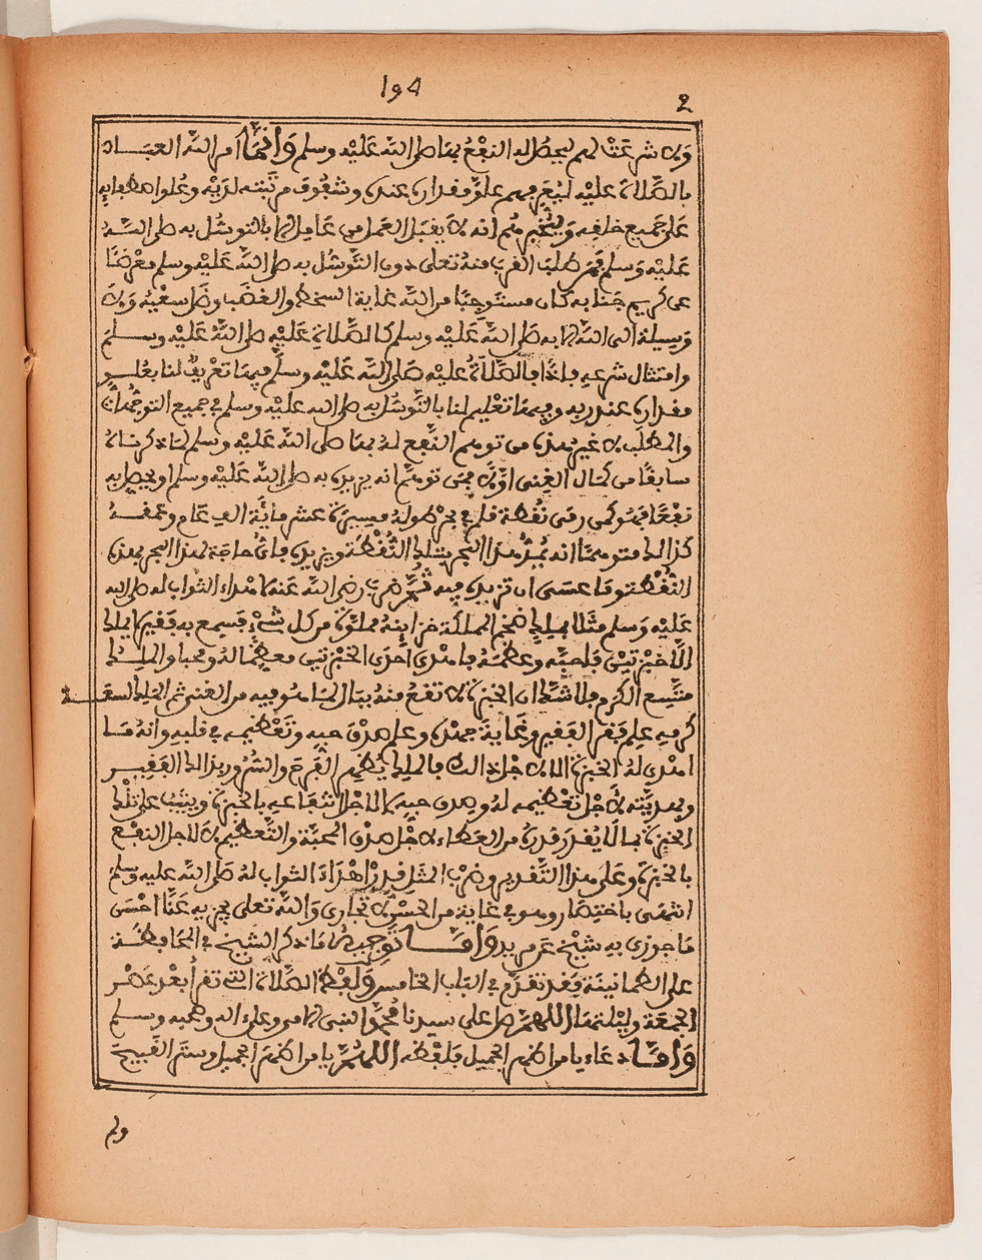 ١٩٤
2
ولا شرعت لهم ليحصل له النفع بها صلى الله عليه وسلم وإنما أمر الله العباد
بالصلاة عليه ليعرفهم علو مقداره عنده وشفوف مرتبته لديه وعلو اصطفائه
على جميع خلقه وليخبرهم أنه لا يقبل العمل من عامل إلا بالتوسل به صلى الله
عليه وسلم فمن طلب القرب منه تعلى دون التوسل به صلى الله عليه وسلم معرضا
عن كريم جنابه كان مستوجبا من الله غاية السخط والغضب وضل سعيه ولا
وسيلة إلى الله إلا به صلى الله عليه وسلم كالصلاة عليه صلى الله عليه وسلم
وامتثال شرعه فإذا بالصلاة عليه صلى الله عليه وسلم فيها تعريف لنا بعلو
مقداره عند ربه وفيها تعليم لنا بالتوسل به صلى الله عليه وسلم في جميع التوجهات
والمطلب لا غير هذه من توهم النفع له بها صلى الله عليه وسلم لما ذكرناه
سابقا من كمال الغنى أولا فمن توهم أنه يزيده به صلى الله عليه وسلم أو يحصل به
نفعا فهو كمن رمى نقطة قلم في بحر طوله مسيرة عشر مائة ألف عام وعمقه
كذالك متوهما أنه يمد هذا البحر بتلك النقطة ويزيده فأي حاجة لهذا البحر بهذه
النقطة وما عسى أن تزيده فيه ثم ضرب رضي الله عنه لإهداء الثواب له صلى الله
عليه وسلم مثلا بملك ضخم المملكة خزاينه مملوة من كل شيء فسمع به فقير لا يملك
إلا خبزتين فأحبه وعظمه فأهدى إحدى الخبزتين معظما له ومحبا والملك
متسع الكرم فلا شك أن الخبزة لا تقع منه ببال لما هو فيه من الغنى ثم الملك لسعة
كرمه علم فقر الفقير وغاية جهده وعلم صدق حبه وتعظيمه في قلبه وأنه ما
أهدى له الخبزة إلا لأجل ذالك فالملك يظهر الفرح والسرور بذالك الفقير
وبهديته لأجل تعظيمه له وصدق حبه لا لأجل انتفاعه بالخبزة ويثيب على تلك
الخبزة بما لا يقدر قدره من العطاء لأجل صدق المحبة والتعظيم لا لأجل النفع
بالخبزة وعلى هذا التقدير وضرب المثل قدر إهداء الثواب له صلى الله عليه وسلم
انتهى باختصار وهو في غاية من الحسن لا تجارى والله تعلى يجزيه عنا أحسن
ما جوزي به شيخ عن مريد وأما توجيه ما ذكر الشيخ في المحافظة
على الطمأنينة فقد تقدم في الباب الخامس ولفظ الصلاة التي تقرأ بعد عصر
الجمعة وليلتها اللهم صل على سيدنا محمد النبي الأمي وعلى آله وصحبه وسلم
وأما دعاء يا من أظهر الجميل فلفظه اللهم يا من أظهر الجميل وستر القبيح
ولم